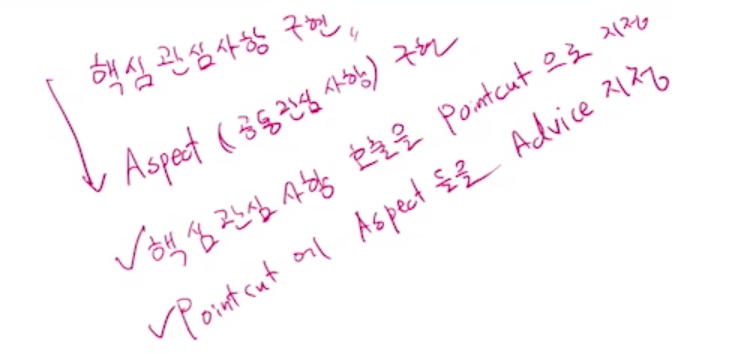 핵심관심사항 구현,,
Aspect (공통관심 사항) 구현
✓핵심관심 사항 호출을 Pointcut 으로 지정
✓Pointcut 에 Aspect 들을 Advice 지정